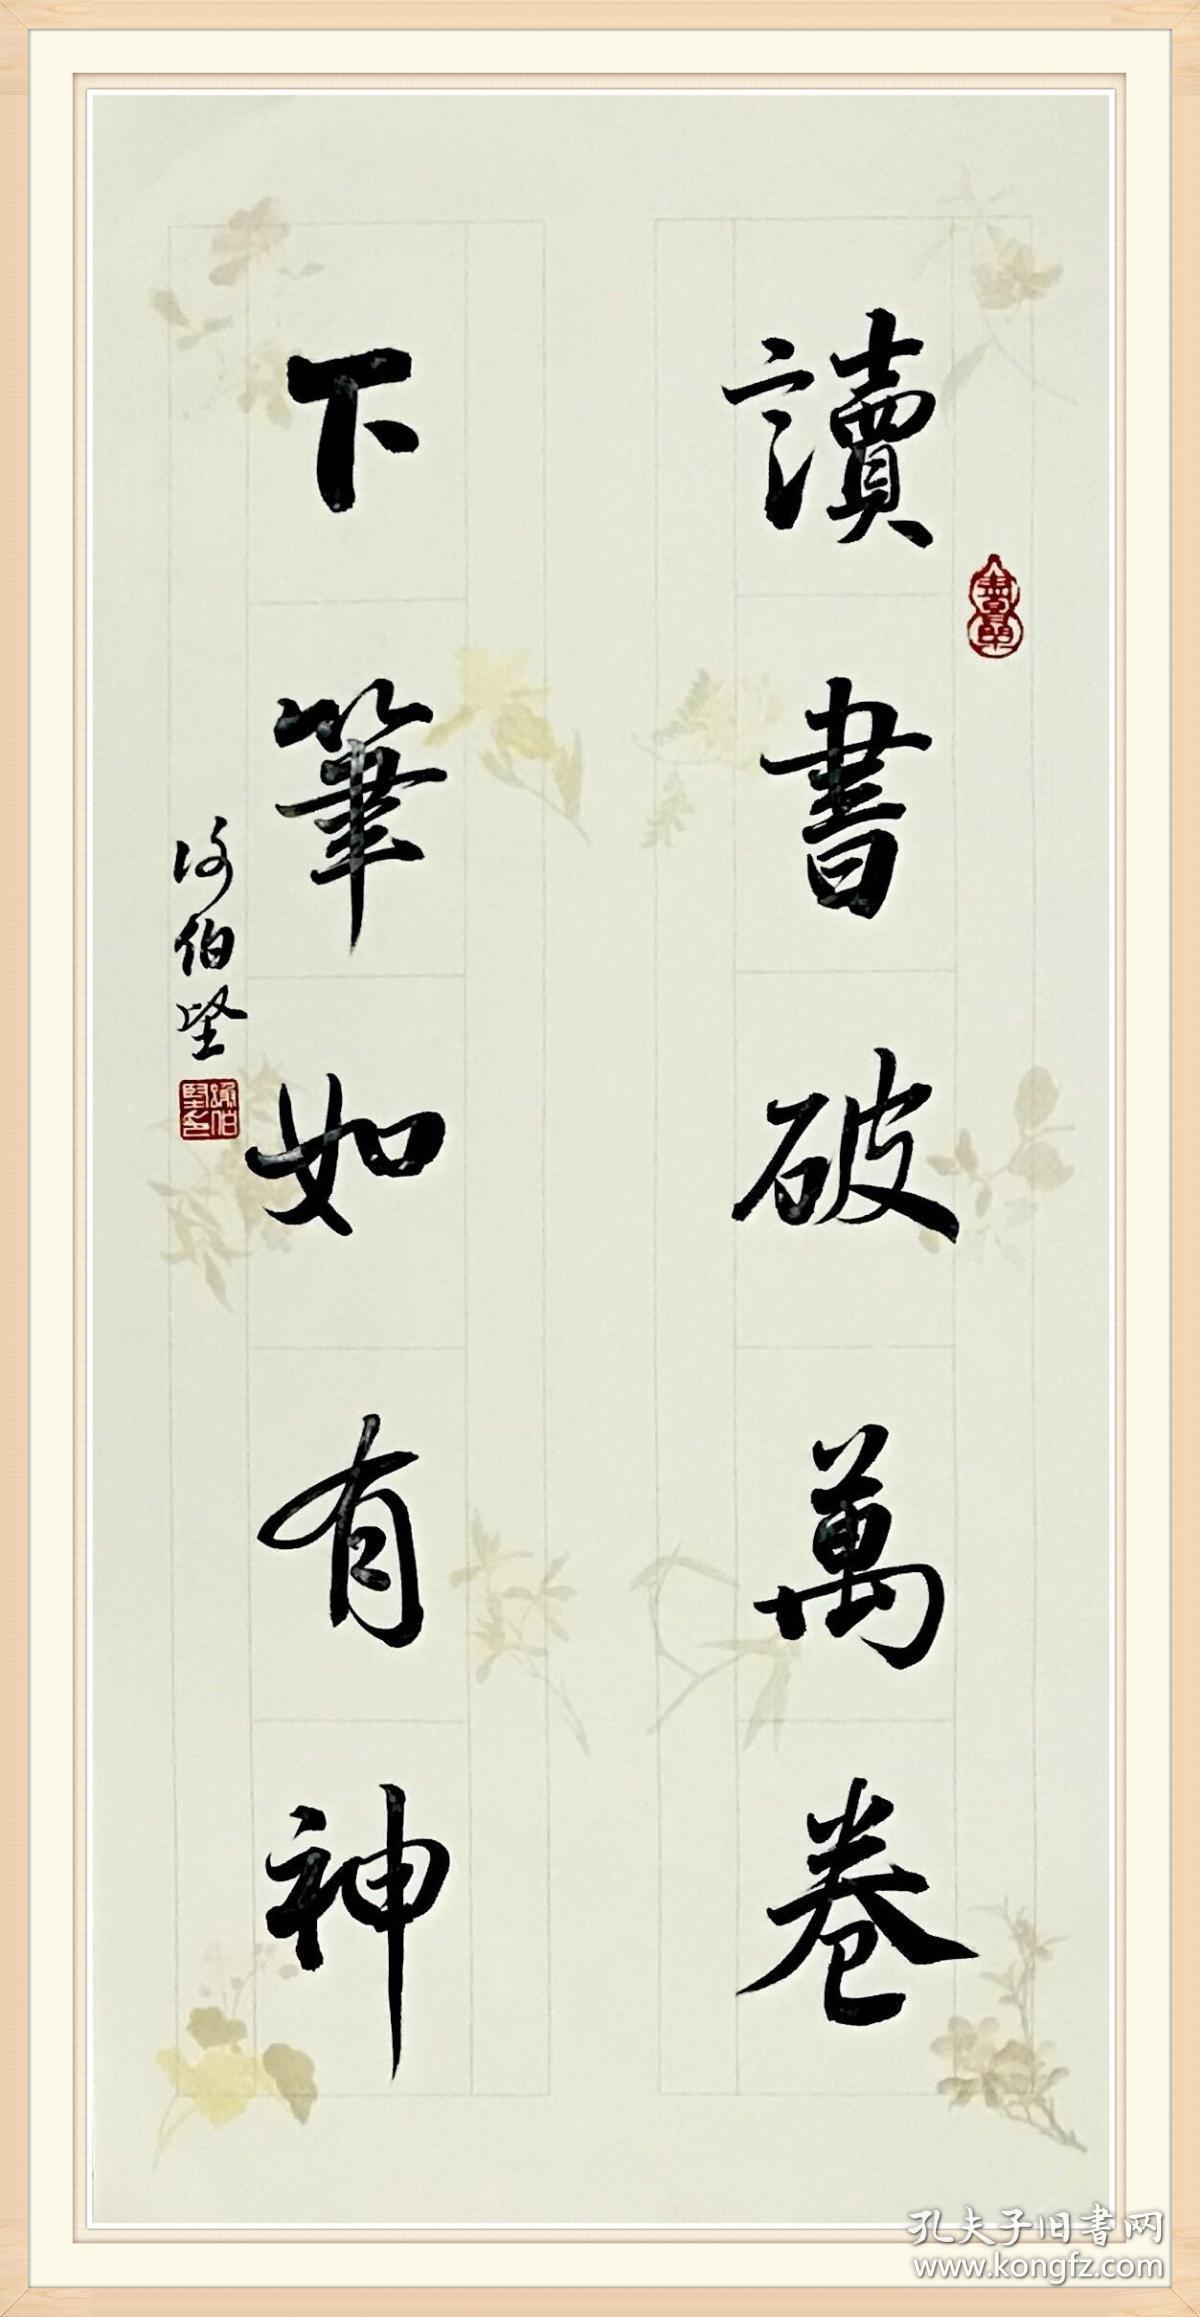 讀書破萬卷
下筆如有神
伯坚
孔夫子旧書网
www.kongfz.com